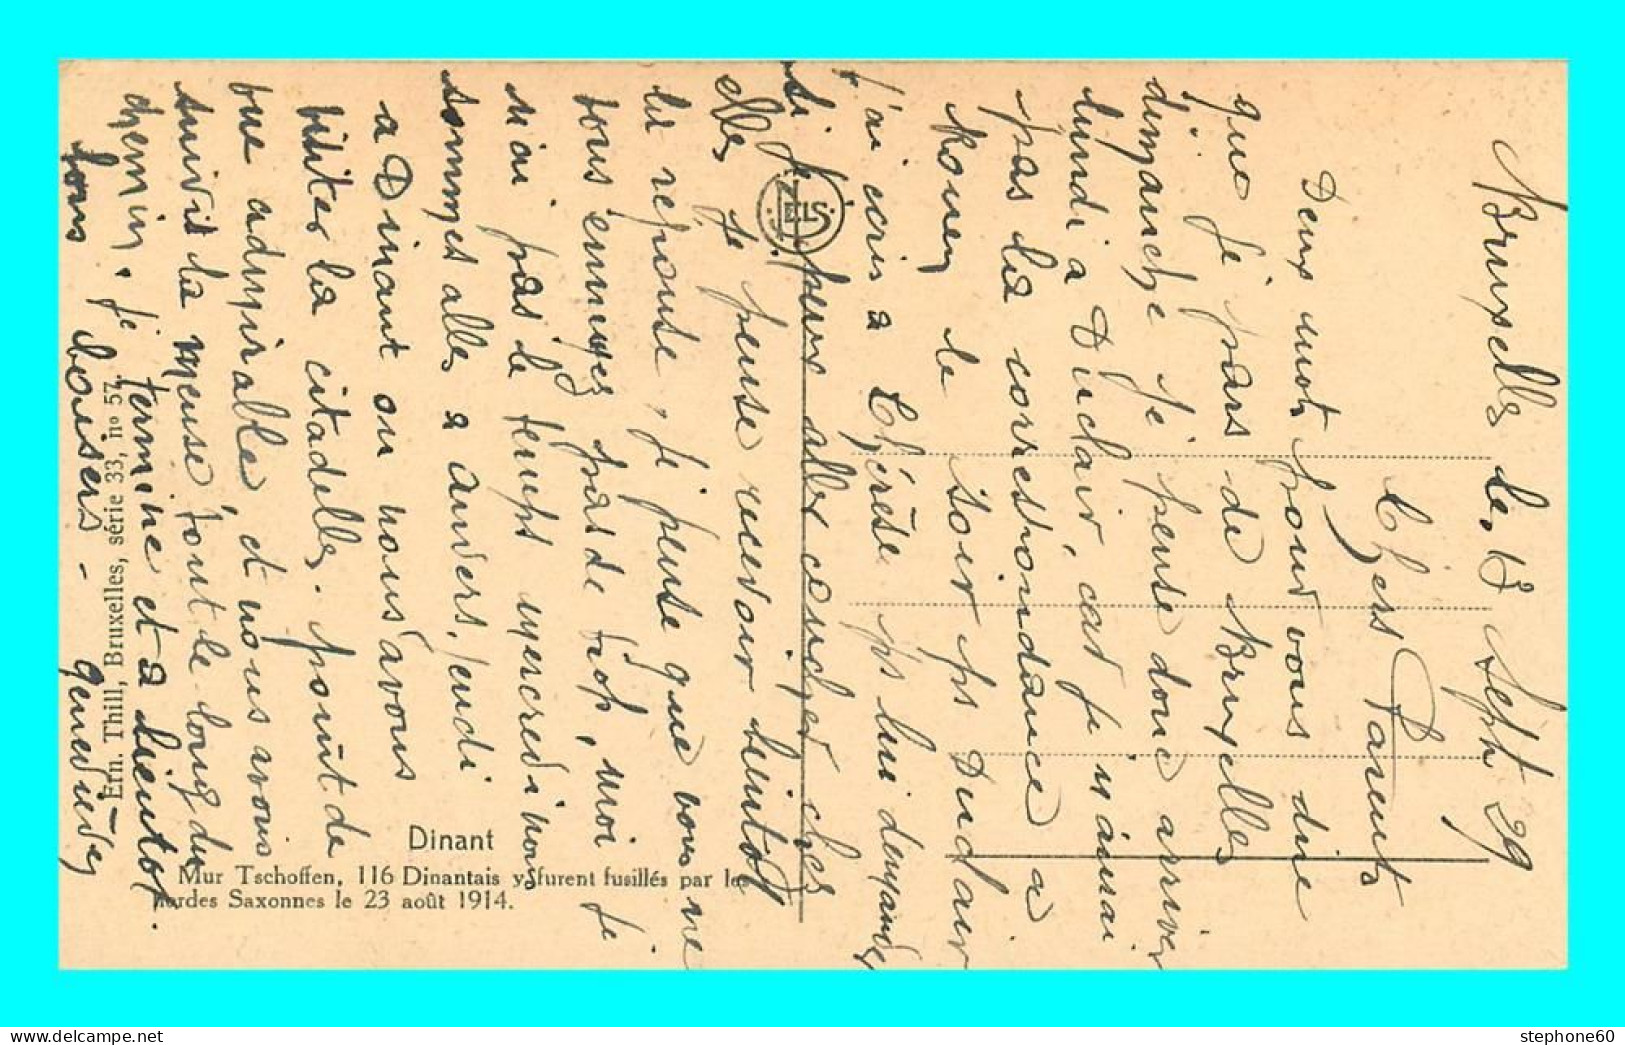 Bruxelles le 13 Sept 29
Chers Parents
Deux mots pour vous dire
que je pars de Bruxelles
dimanche je pense donc arriver
lundi à Duclair, car je n'aurai
pas la correspondance à
Rouen le soir ps Duclair
j'ai ecris a Thérèse ps lui demander
si je peux aller coucher chez
elle, je pense recevoir bientot
la reponse, je pense que vous ne
vous ennuyez pas de trop, moi je
n'ai pas le temps mercredi nous
sommes alles a anvers, jeudi
a Dinant ou nous avons
visiter la citadelle. point de
vue admirable, et nous avons
suivit la meuse tout le long du
chemin. je termine et a bientot.
bons baisers - genevieve
ZELS
Dinant
Mur Tschoffen, 116 Dinantais y furent fusillés par les
hordes Saxonnes le 23 août 1914.
Ern. Thill, Bruxelles, série 33, n° 57.
stephone60